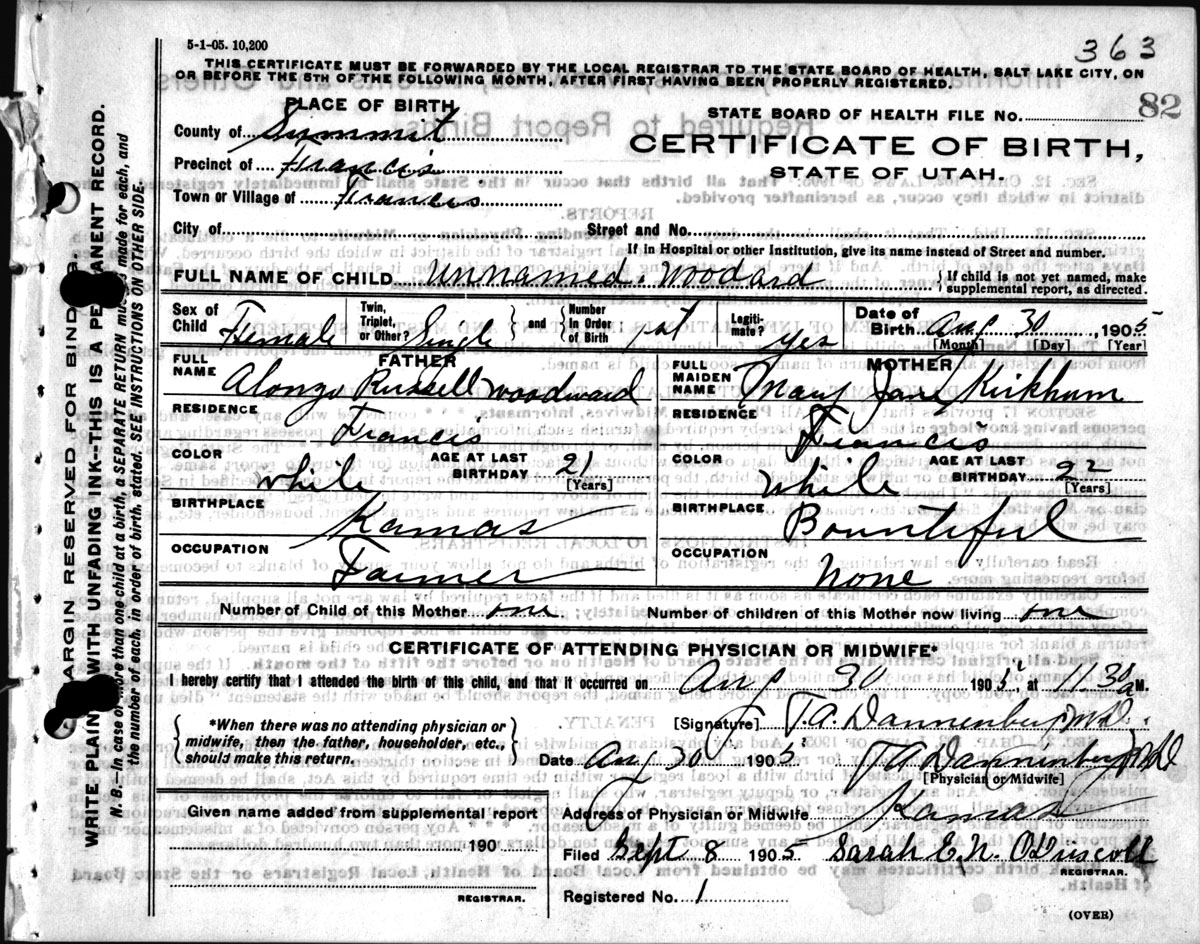 5-1-05. 10,200
363
THIS CERTIFICATE MUST BE FORWARDED BY THE LOCAL REGISTRAR TO THE STATE BOARD OF HEALTH, SALT LAKE CITY, ON
OR BEFORE THE 5TH OF THE FOLLOWING MONTH, AFTER FIRST HAVING BEEN PROPERLY REGISTERED.
PLACE OF BIRTH
STATE BOARD OF HEALTH FILE NO. 82
County of Summit
CERTIFICATE OF BIRTH,
Precinct of Francis
STATE OF UTAH.
Town or Village of Francis
City of Street and No.
If in Hospital or other Institution, give its name instead of Street and number.
FULL NAME OF CHILD Unnamed. Woodard {If child is not yet named, make
supplemental report, as directed.
Sex of Child Female Twin, Triplet, or Other? Single } and { Number In Order of Birth 1st Legiti-mate? yes Date of Birth Aug 30 1905
[Month] [Day] [Year]
FATHER
FULL NAME Alonzo Russell Woodward
RESIDENCE
Francis
COLOR White AGE AT LAST BIRTHDAY 21
[Years]
BIRTHPLACE
Kamas
OCCUPATION
Farmer
MOTHER
FULL MAIDEN NAME Mary Jane Kirkham
RESIDENCE
Francis
COLOR White AGE AT LAST BIRTHDAY 22
[Years]
BIRTHPLACE
Bountiful
OCCUPATION
None
Number of Child of this Mother one Number of children of this Mother now living one
CERTIFICATE OF ATTENDING PHYSICIAN OR MIDWIFE*
I hereby certify that I attended the birth of this child, and that it occurred on Aug 30 1905, at 11.30 a M.
{*When there was no attending physician or
midwife, then the father, householder, etc.,
should make this return.}
[Signature] T.A. Dannenberg M.D.
Date Aug 30 1905 T A Dannenberg MD
[Physician or Midwife]
Given name added from supplemental report
190
REGISTRAR.
Address of Physician or Midwife Kamas
Filed Sept 8 1905 Sarah E. N. O'Driscoll
REGISTRAR.
Registered No. 1
(OVER)
MARGIN RESERVED FOR BINDING.
WRITE PLAINLY WITH UNFADING INK--THIS IS A PERMANENT RECORD.
N. B.—In case of more than one child at a birth, a SEPARATE RETURN must be made for each, and
the number of each, in order of birth, stated. SEE INSTRUCTIONS ON OTHER SIDE.